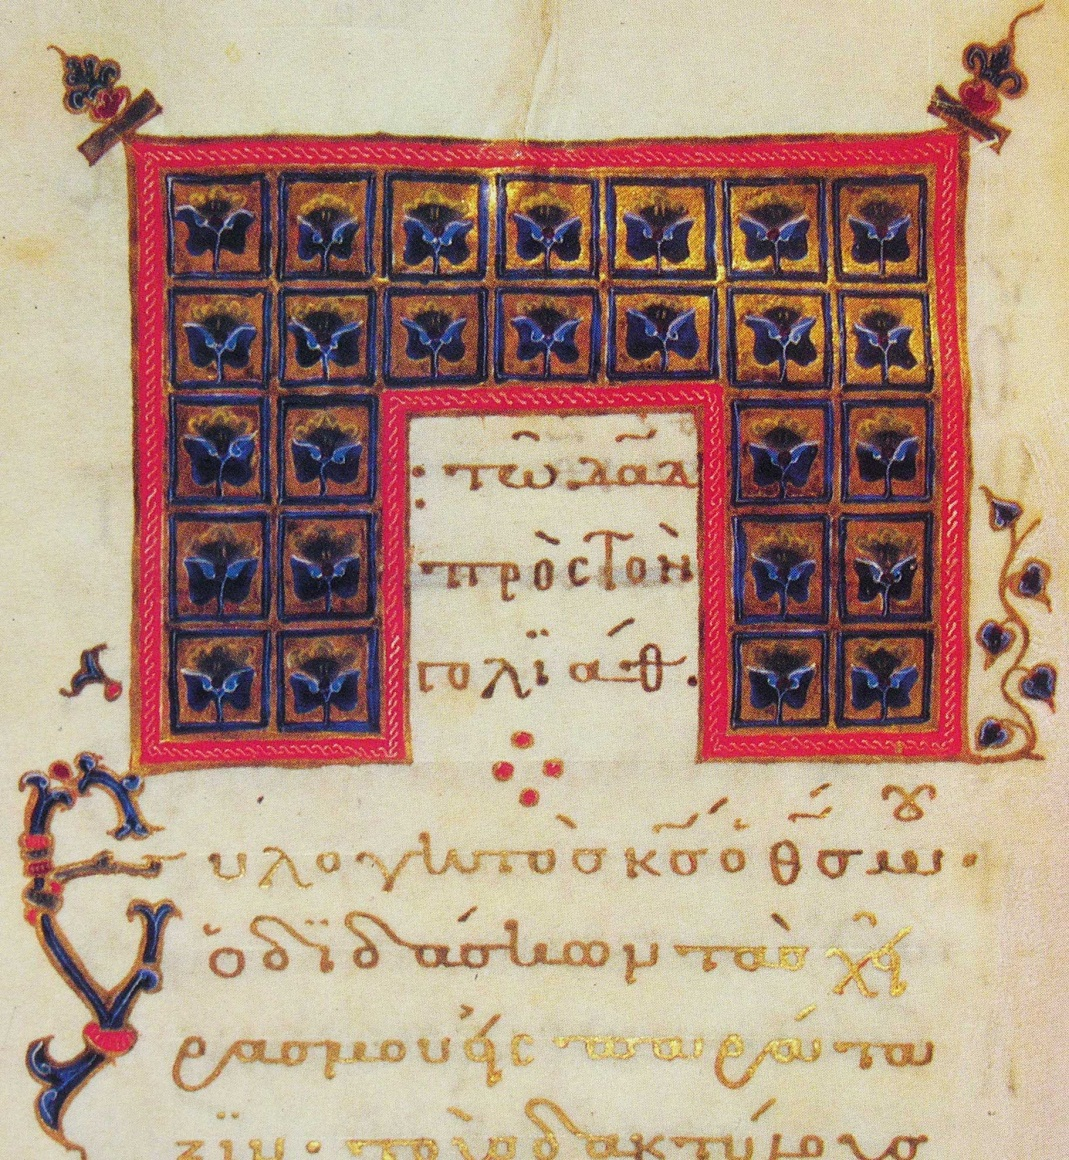 τῶ δᾱδ
πρὸς τὸν
γολϊάθ.
Εὐλογητὸς κ̅ς̅ ὁ θ̅ς̅ μου·
ὁ διδάσκων τὰς χεῖ
ράς μου εἰς παράτα
ξιν· τοὺς δακτύλους